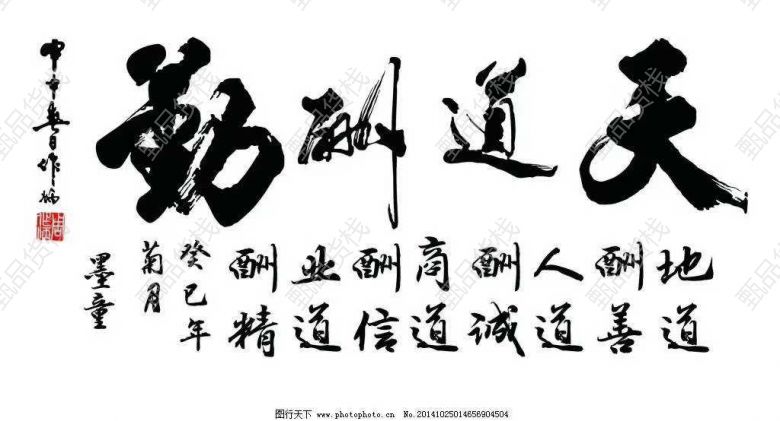 天道酬勤
地道酬善
人道酬诚
商道酬信
业道酬精
癸巳年
菊月
墨童
甲申春日作炳
甄品货栈
图行天下 www.photophoto.cn No.20141025014656904504